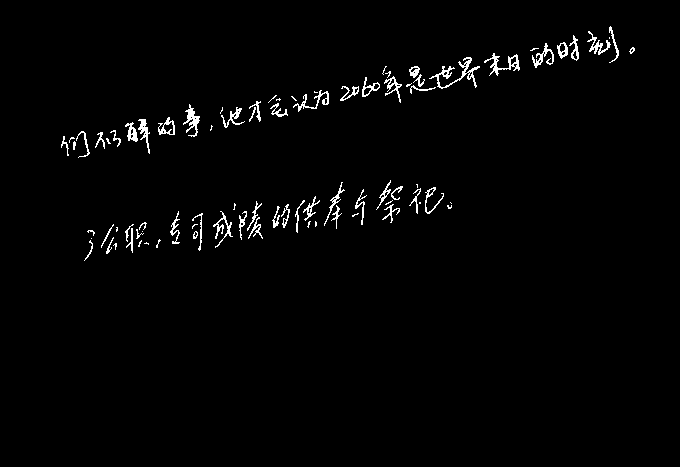 们不解的事,他才会认为2060年是世界末日的时刻。
了公职,专司成陵的供奉与祭祀。